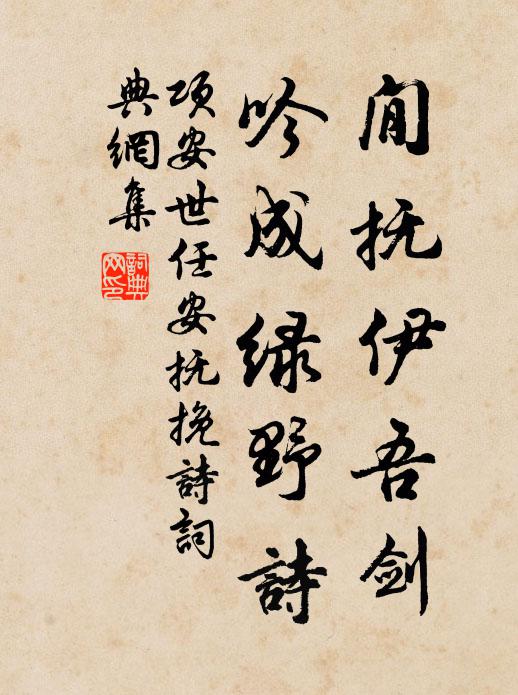 闲抚伊吾剑
吟成绿野詩
项安世任安抚挽詩詞
典網集
詞典網印